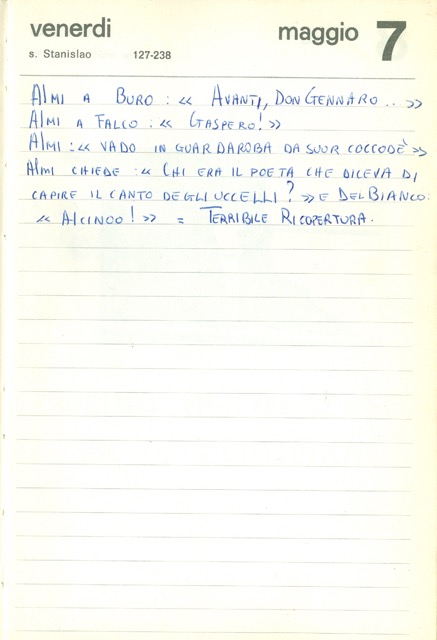 venerdi maggio 7
s. Stanislao 127-238
Almi a Buro: « Avanti, Don Gennaro.. »
Almi a Falco: « Gaspero! »
Almi: « Vado in guardaroba da suor Coccodè »
Almi chiede: « Chi era il poeta che diceva di
capire il canto degli uccelli? » e Del Bianco:
« Alcinoo! » = Terribile Ricopertura.